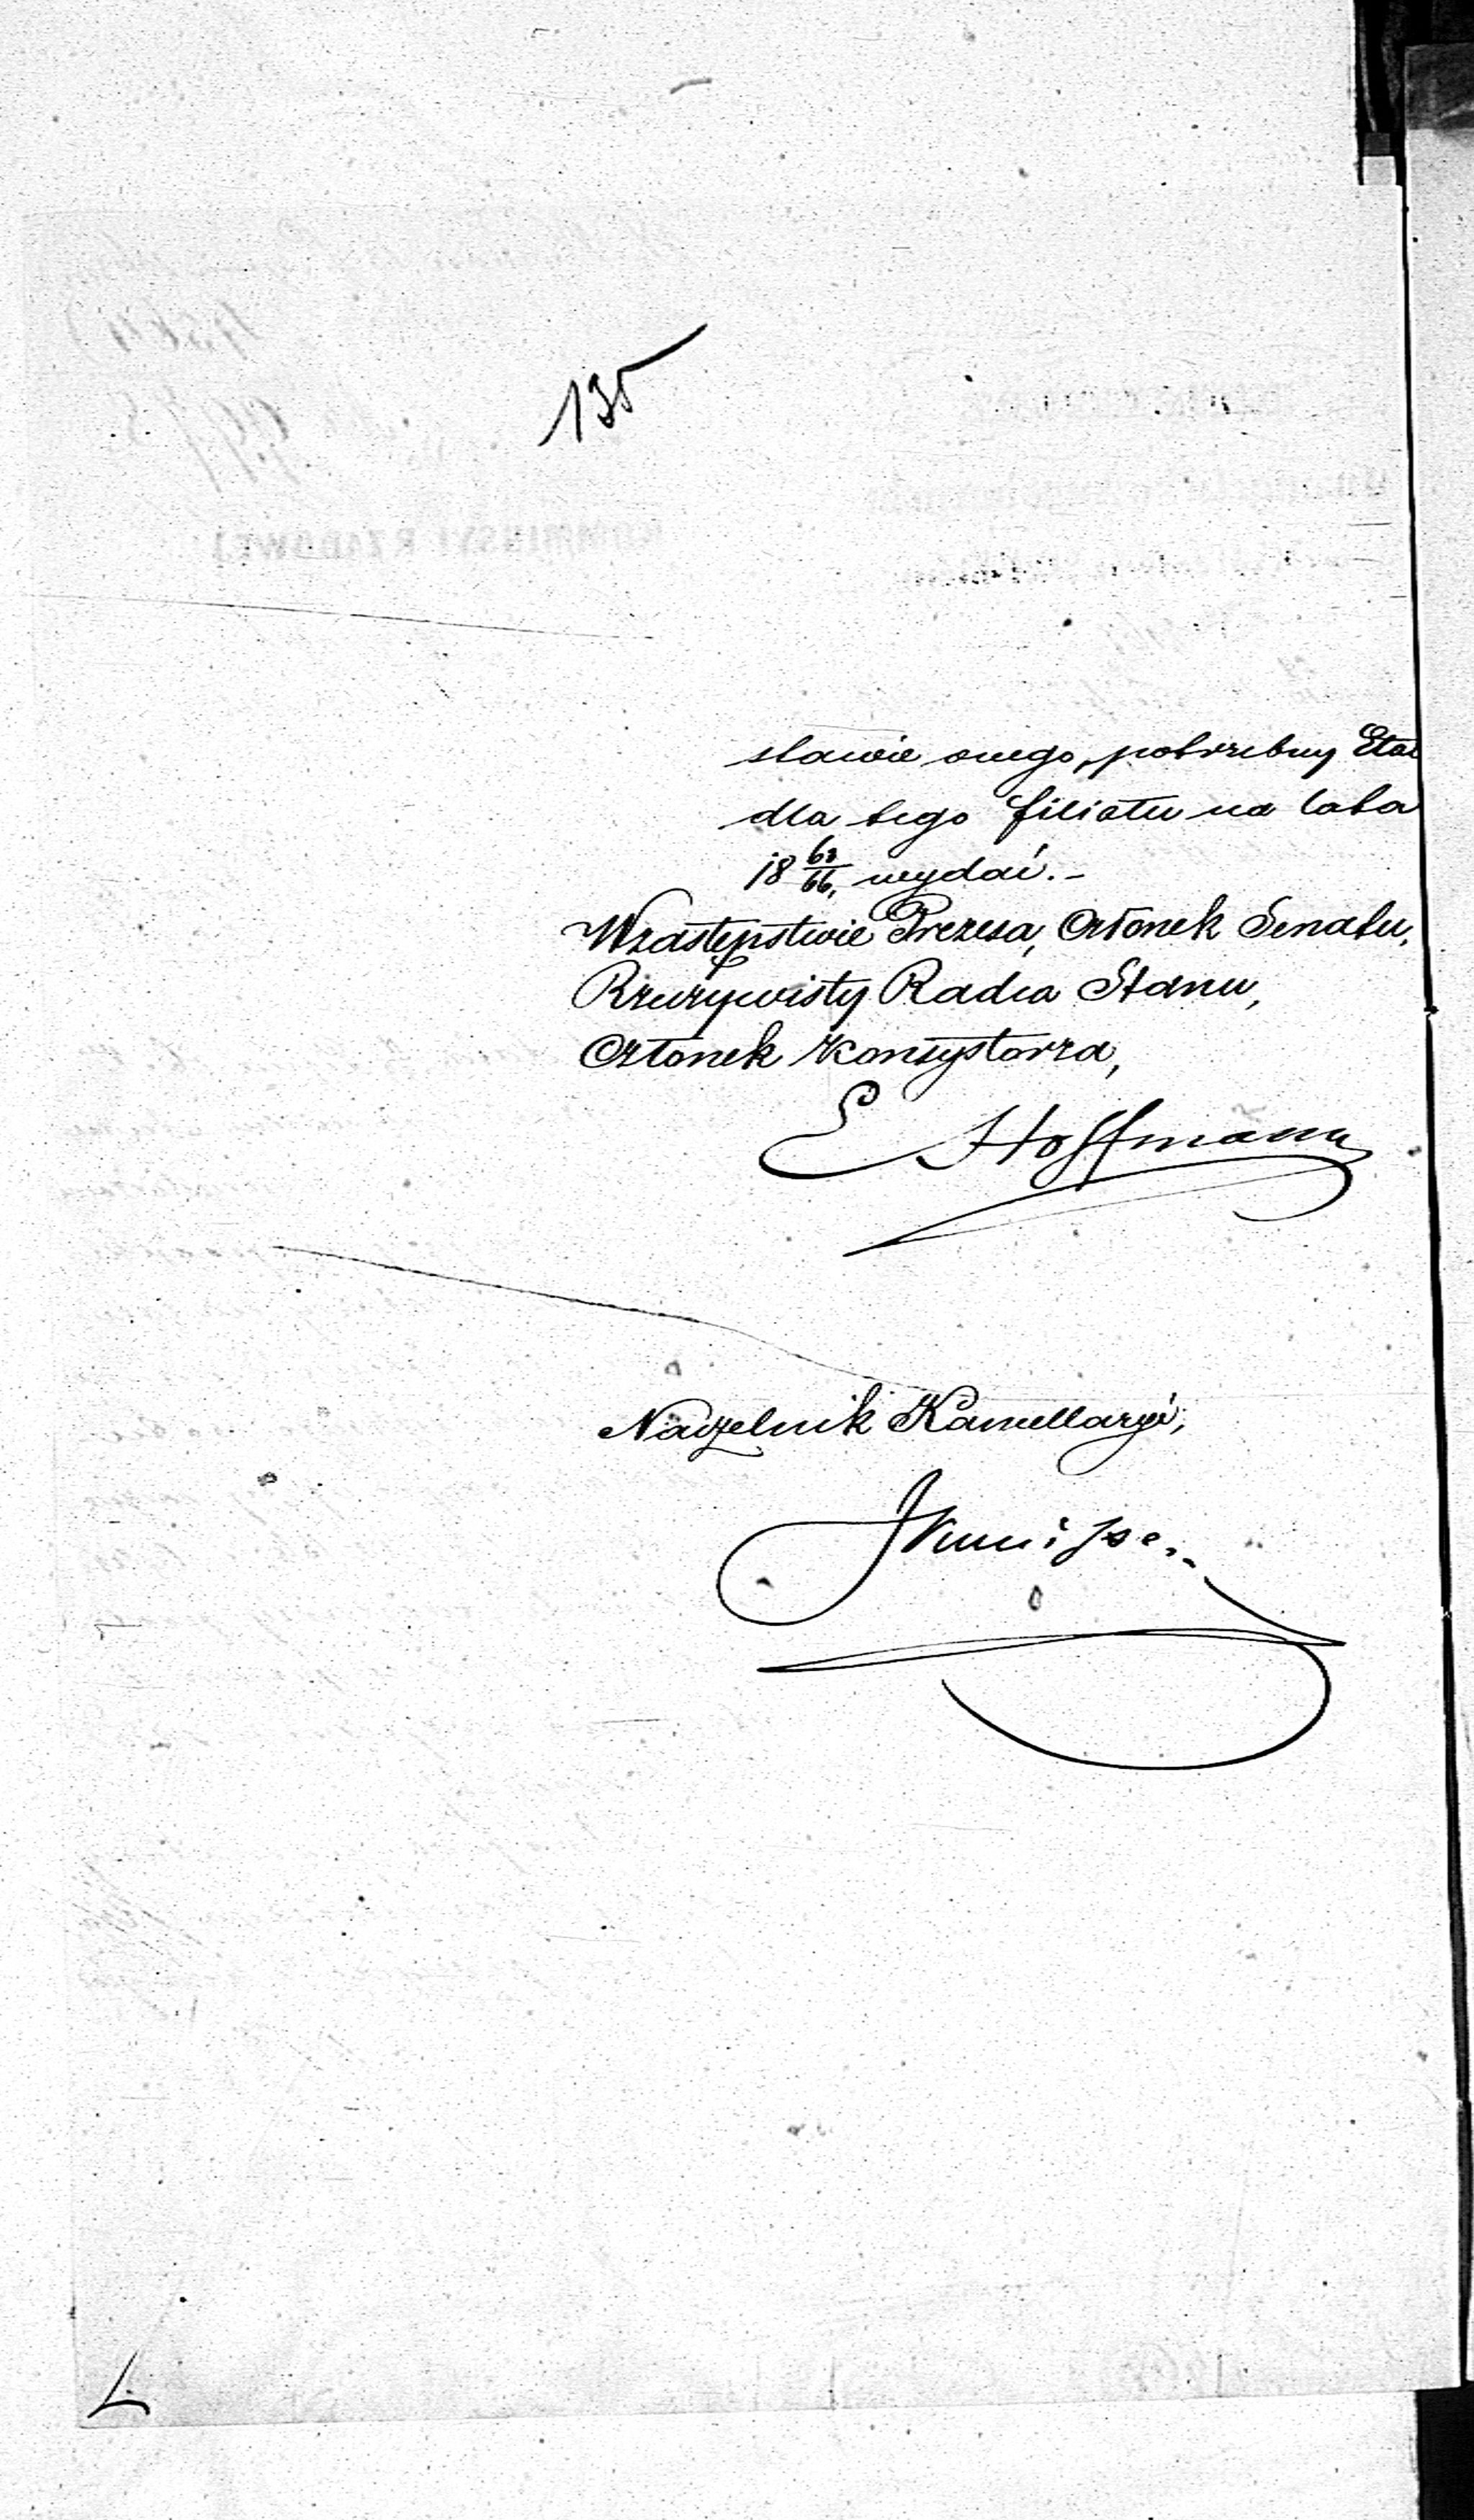 135
stawie onego, potrzebny Etat
dla tego filiatu na lata
18 63/66, wydać.-
W zastępstwie Prezesa, Członek Senatu,
Rzeczywisty Radca Stanu,
Członek Konsystorza,
E Hoffmann
Naczelnik Kancellaryi,
L